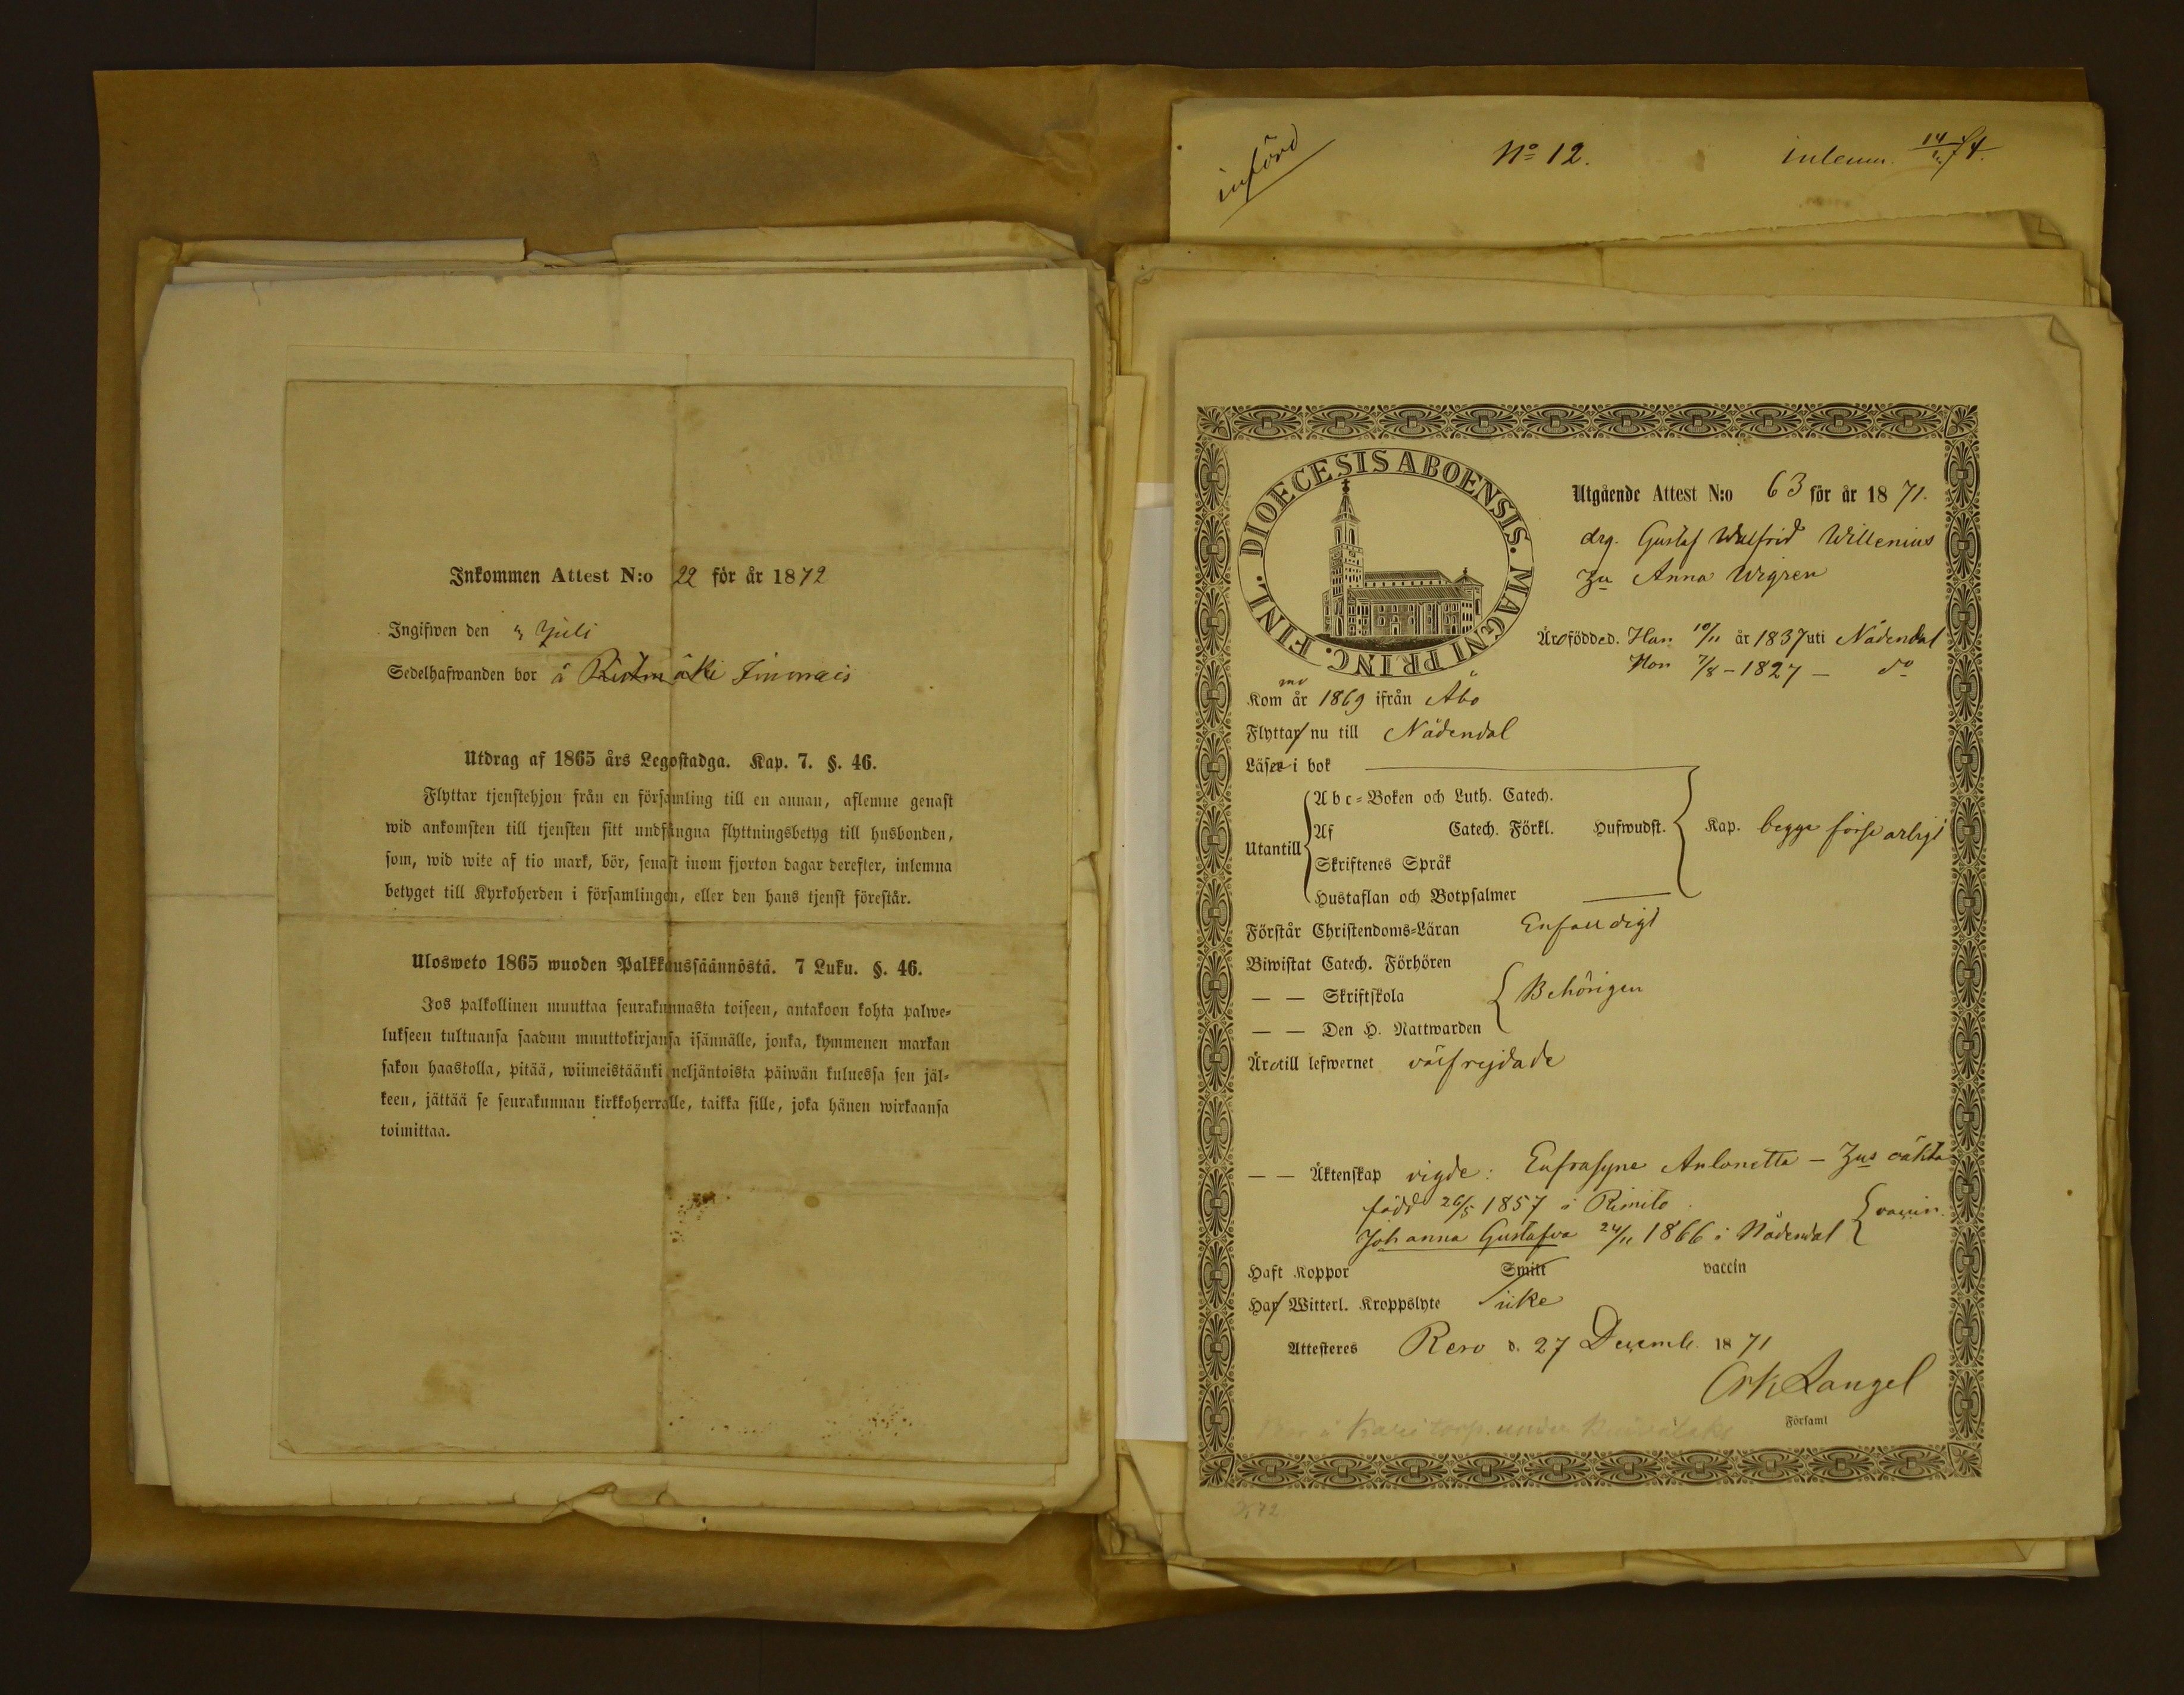 Inkommen Attest N:o 22 för år 1872
Ingifwen den 4 Juli
Sedelhafwanden bor å
Utdrag af 1865 års Legostadga. Kap. 7. §. 46.
Flyttar tjenstehjon från en församling till en annan, aflemne genast
wid ankomsten till tjensten sitt undfångna flyttningsbetyg till husbonden,
som, wid wite af tio mark, bör, senast inom fjorton dagar derefter, inlemna
betyget till Kyrkoherden i församlingen, eller den hans tjenst förestår.
Ulosweto 1865 wuoden Palkkaussäännöstä. 7 Luku. §. 46.
Jos palkollinen muuttaa seurakunnasta toiseen, antakoon kohta palwe-
lukseen tultuansa saadun muuttokirjansa isännälle, jonka, kymmenen markan
sakon haastolla, pitää, wiimeistäänki neljäntoista päiwän kuluessa sen jäl-
keen, jättää se seurakunnan kirkkoherralle, taikka sille, joka hänen wirkaansa
toimittaa.
införd
No 12.
inlemn. 74.
DIOECESIS ABOENSIS. MAGNI PRINC. FINL.
Utgående Attest N:o 63 för år 1871.
drg. Gustaf Walfrid Willenius
Anna Wigren
Äro födde d. Han 10/11 år 1837 uti Nådendal
Hon 7/8 - 1827 - do
Kommo år 1869 ifrån Åbo
Flytta nu till Nådendal
Läsa i bok
Utantill
Abc-Boken och Luth. Catech.
Af Catech. Förkl. Hufwudst. Kap. begge försvarligt
Skriftenes Språk
Hustaflan och Botpsalmer
Förstår Christendoms-Läran Enfaldigt
Biwistat Catech. Förhören
— — Skriftskola Behörigen
— — Den H. Nattwarden
Äro till lefwernet välfrejdade
— — Äktenskap vigde: Eufrosyne Antonetta - äkta
född 26/5 1857 i Rimito
Johanna Gustafva 24/11 1866 i Nådendal vaccin.
Haft Koppor Smitt vaccin
Ha Witterl. Kroppslyte icke
Attesteres Reso d. 27 Decemb. 1871
Langel
Församl